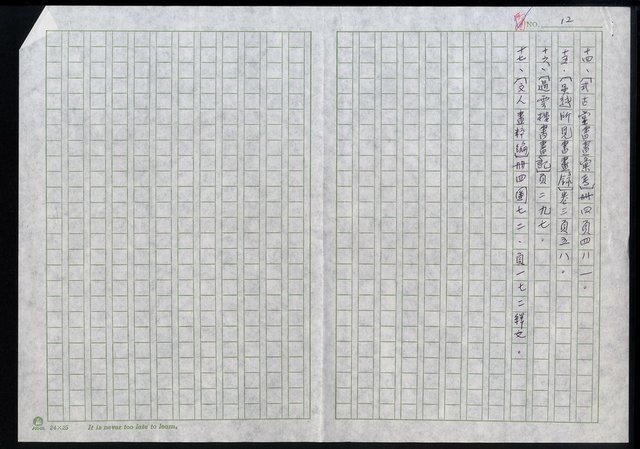 NO. 12
十四、〔式古堂書畫彙考〕冊四頁四八一。
十五、〔吳越所見書畫錄〕卷三頁五八。
十六、〔過雲樓書畫記〕頁二九七。
十七、〔文人畫粹編〕冊四圖七二、頁一七二釋文。
24×25
It is never too late to learn.